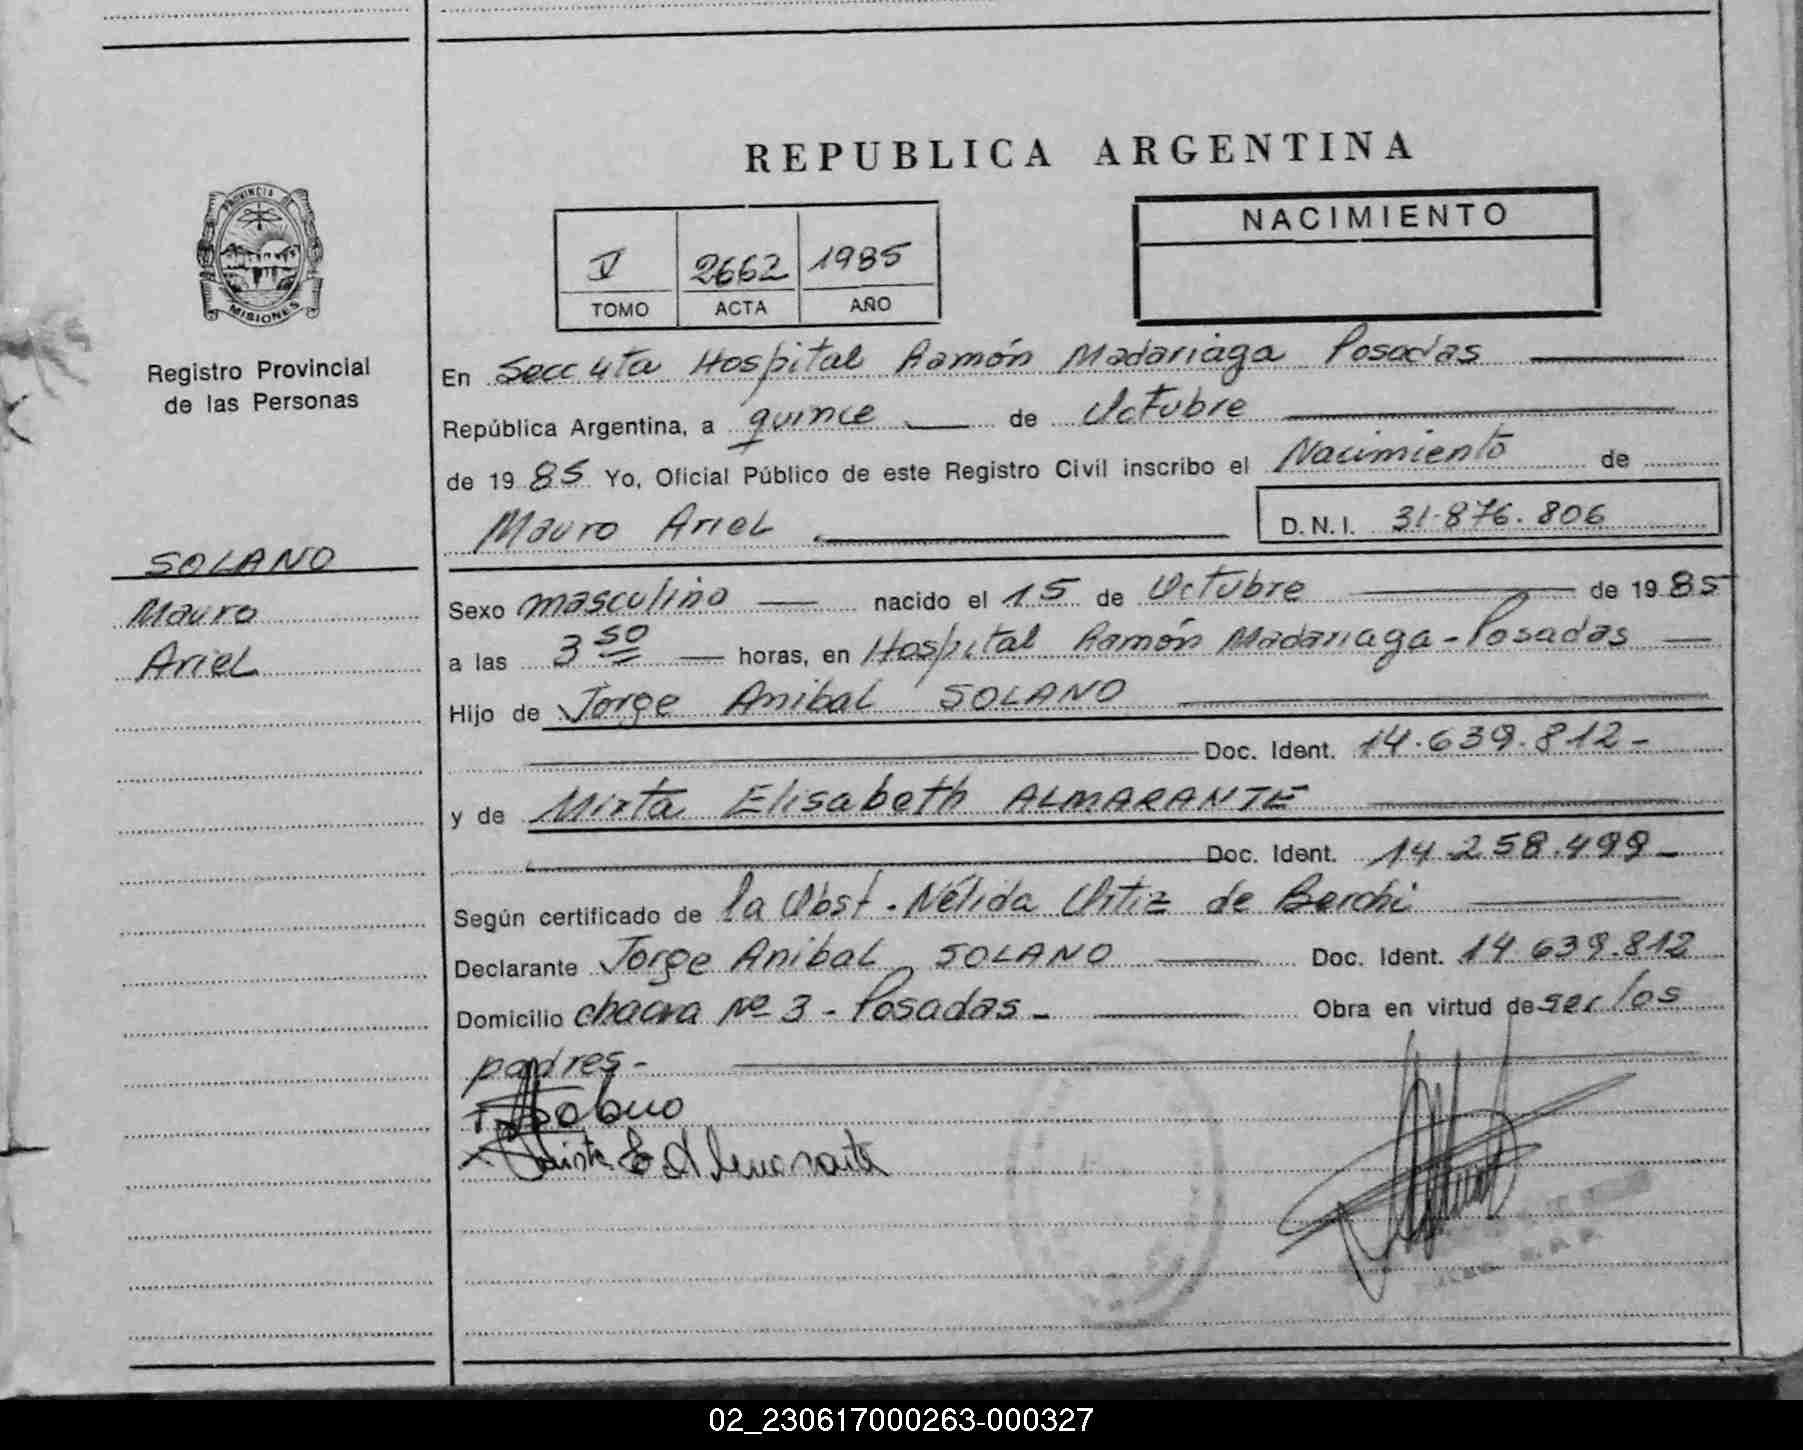 REPUBLICA ARGENTINA
PROVINCIA DE
MISIONES
Registro Provincial
de las Personas
V 2662 1985
TOMO ACTA AÑO
NACIMIENTO
En Secc 4ta Hospital Ramón Madariaga Posadas
República Argentina, a quince de Octubre
de 1985 Yo, Oficial Público de este Registro Civil inscribo el Nacimiento de
Mauro Ariel D.N.I. 31.876.806
SOLANO
Mauro
Ariel
Sexo masculino nacido el 15 de Octubre de 1985
a las 3 50 horas, en Hospital Ramón Madariaga - Posadas
Hijo de Jorge Anibal SOLANO
Doc. Ident. 14.639.812-
y de Mirta Elisabeth ALMARANTE
Doc. Ident. 14.258.499-
Según certificado de la Obst. Nélida Ortiz de Berchi
Declarante Jorge Anibal SOLANO Doc. Ident. 14.639.812
Domicilio chacra Nº 3 - Posadas - Obra en virtud de ser los
padres-
Solano
Mirta E Almarante
02_230617000263-000327